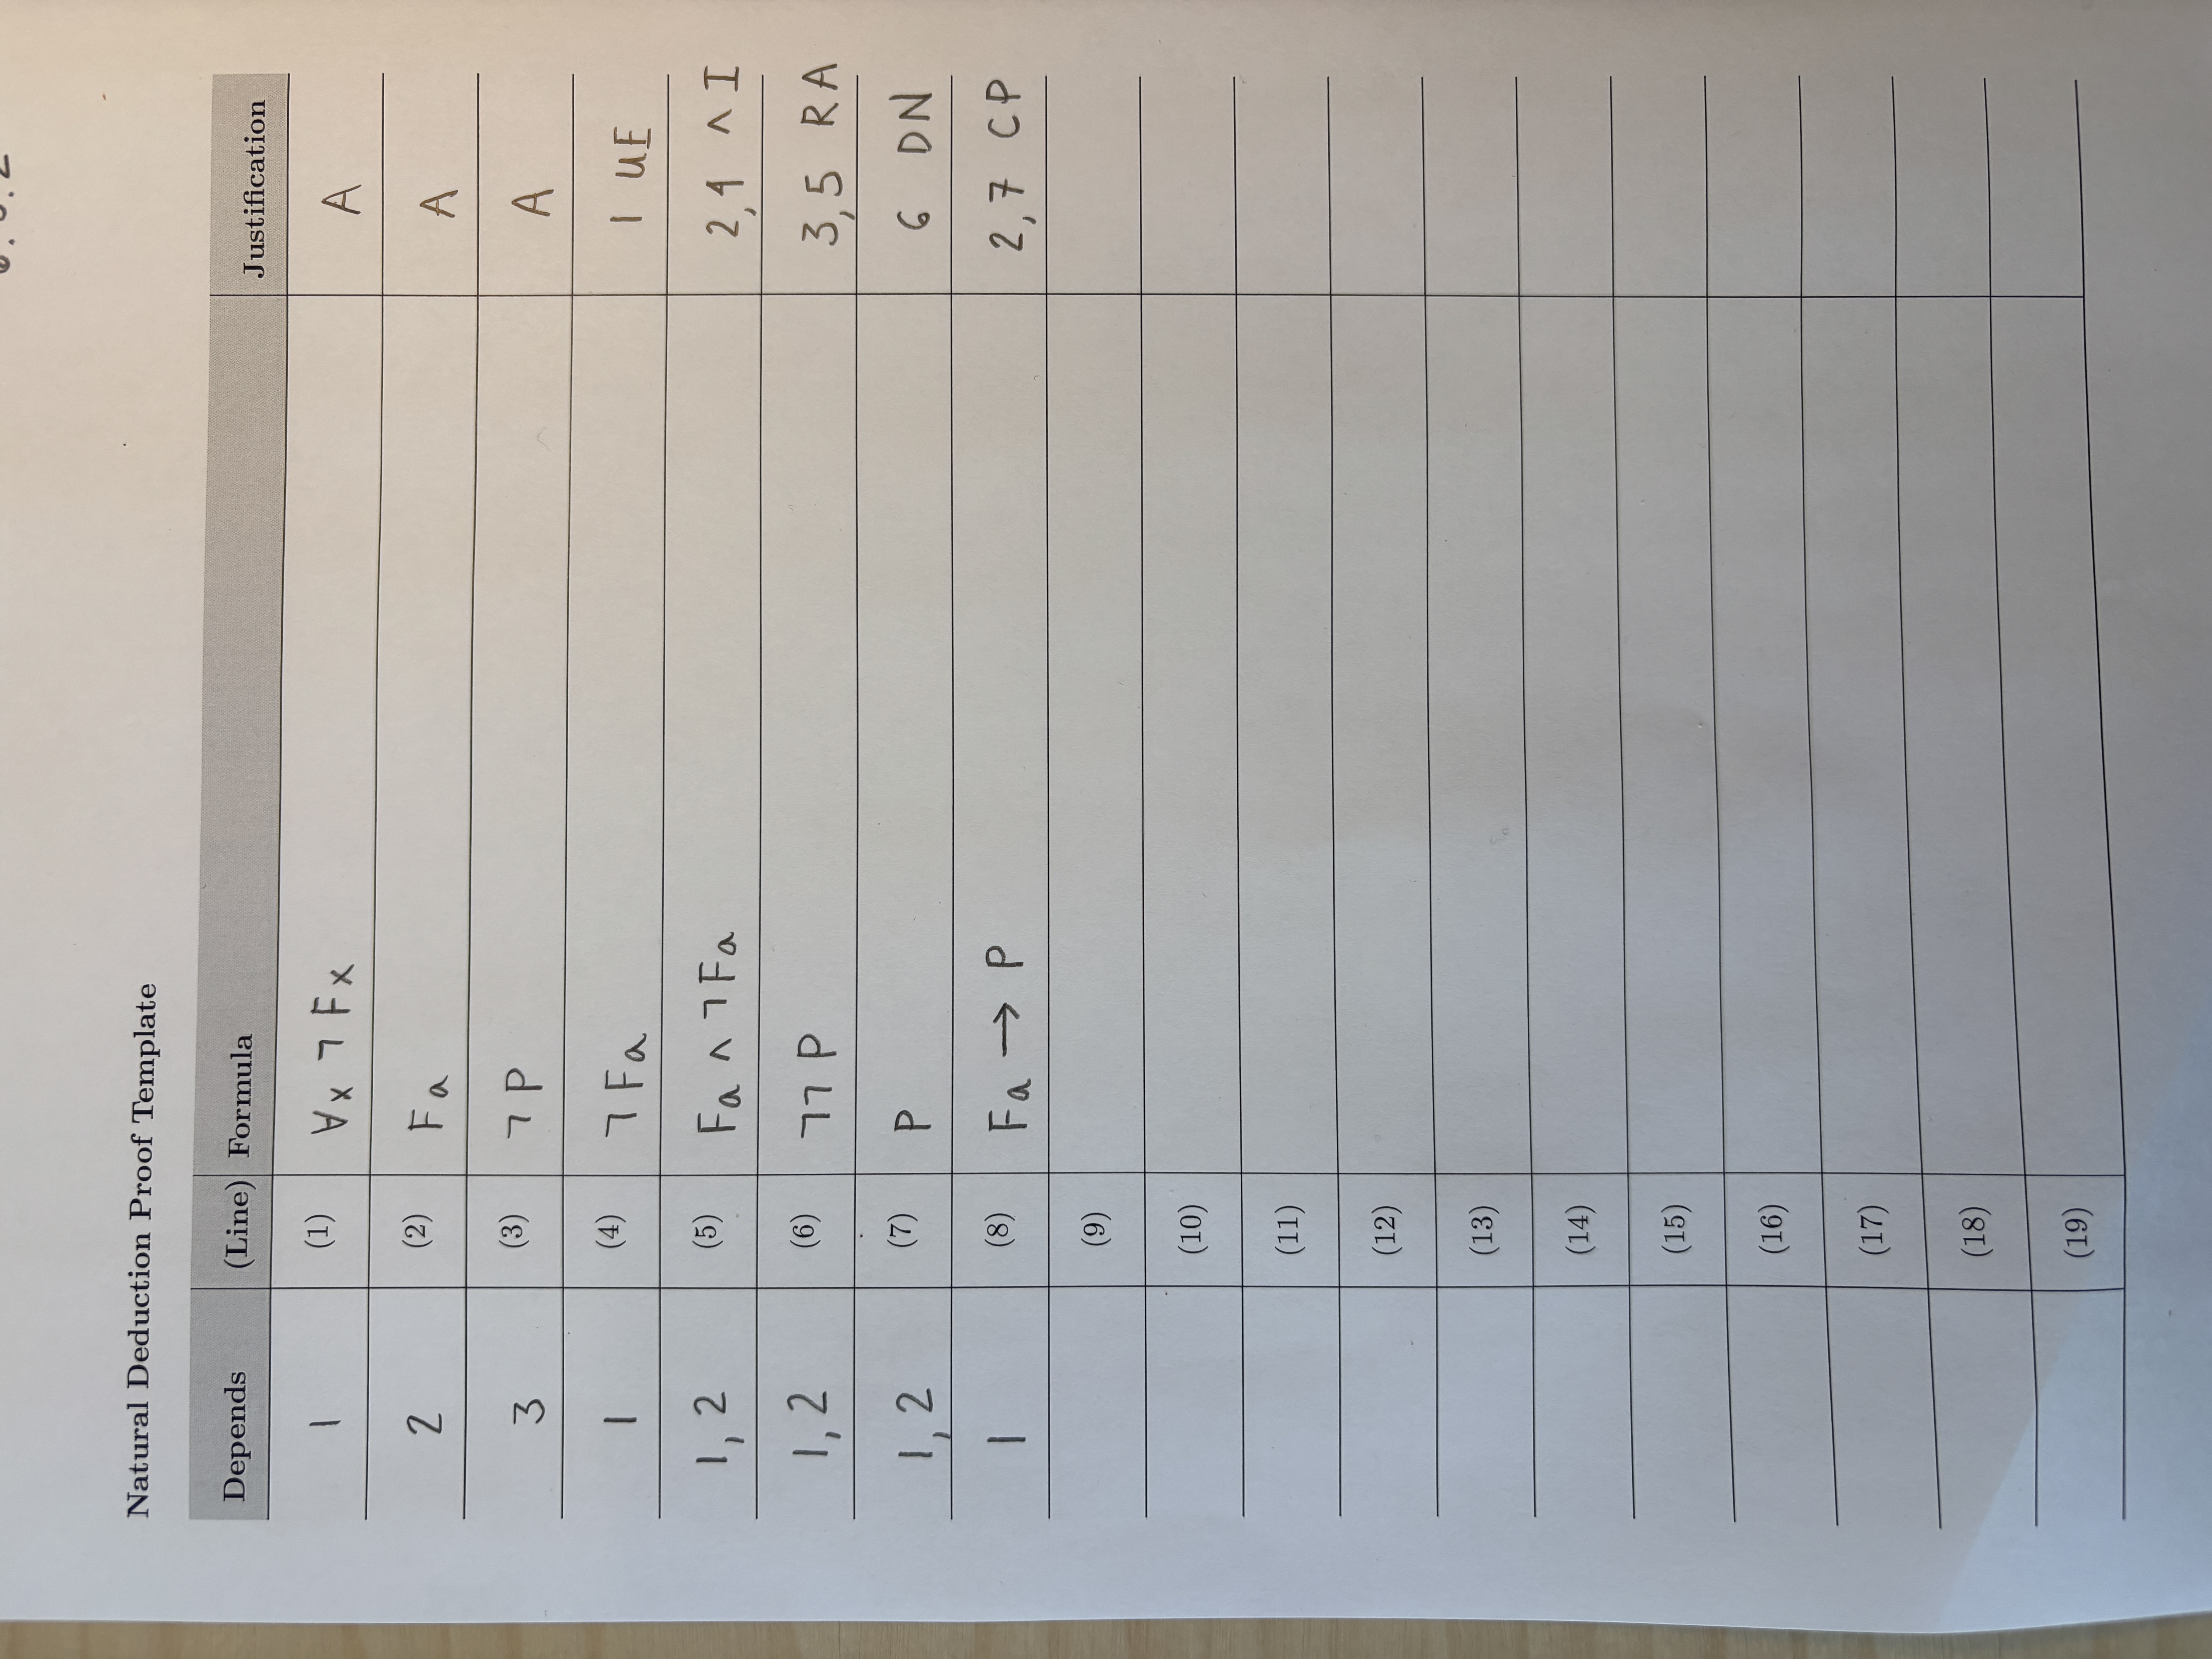 6.5.2
Natural Deduction Proof Template
Depends (Line) Formula Justification
1 (1) ∀x ¬Fx A
2 (2) Fa A
3 (3) ¬P A
1 (4) ¬Fa 1 UE
1, 2 (5) Fa ∧ ¬Fa 2,4 ∧I
1, 2 (6) ¬¬P 3,5 RA
1, 2 (7) P 6 DN
1 (8) Fa → P 2,7 CP
(9)
(10)
(11)
(12)
(13)
(14)
(15)
(16)
(17)
(18)
(19)